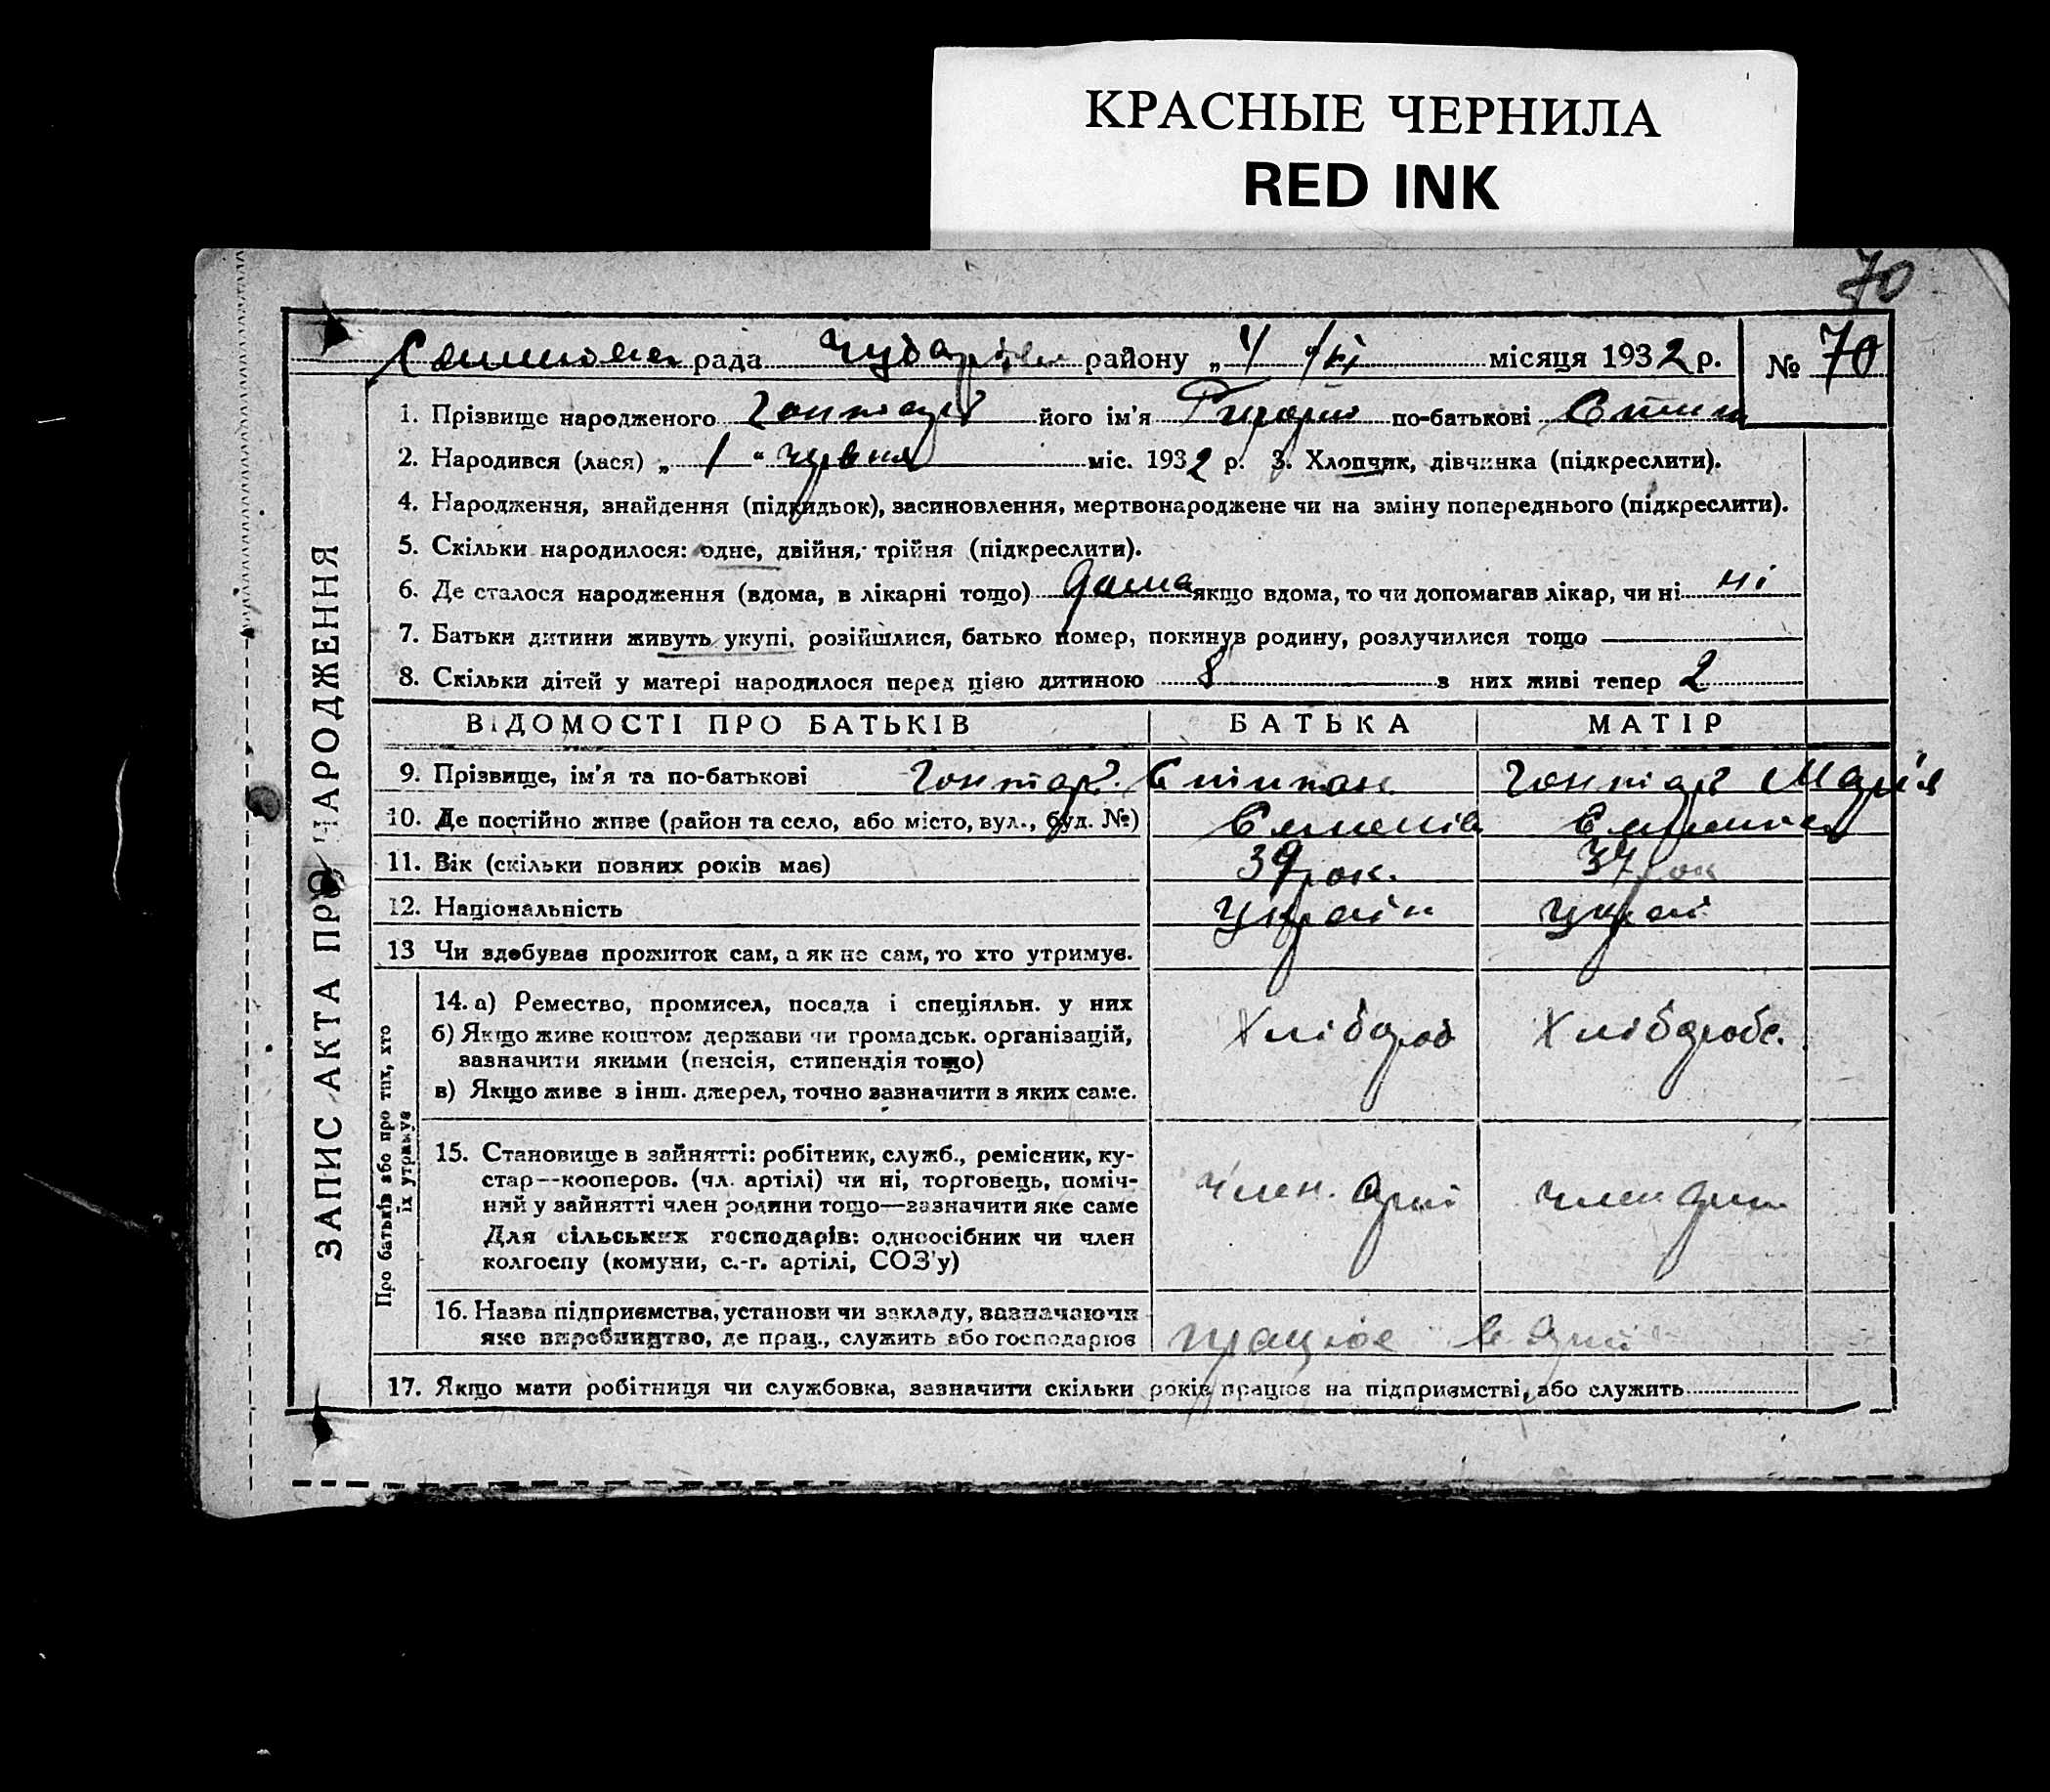 КРАСНЫЕ ЧЕРНИЛА
RED INK
70
рада району „4“ місяця 1932 р. № 70
1. Прізвище народженого Гонтарь його ім'я по-батькові
2. Народився (лася) „1“ червня міс. 1932 р. 3. Хлопчик, дівчинка (підкреслити).
4. Народження, знайдення (підкидьок), засиновлення, мертвонароджене чи на зміну попереднього (підкреслити).
5. Скільки народилося: одне, двійня, трійня (підкреслити).
6. Де сталося народження (вдома, в лікарні тощо) дома якщо вдома, то чи допомагав лікар, чи ні ні
7. Батьки дитини живуть укупі, розійшлися, батько помер, покинув родину, розлучилися тощо
8. Скільки дітей у матері народилося перед цією дитиною 8 з них живі тепер 2
ВІДОМОСТІ ПРО БАТЬКІВ БАТЬКА МАТІР
9. Прізвище, ім'я та по-батькові Гонтарь Степан Гонтарь Марія
10. Де постійно живе (район та село, або місто, вул., буд. №)
11. Вік (скільки повних років має) 39 рок. 37 рок
12. Національність Україн Украї
13 Чи здобуває прожиток сам, а як не сам, то хто утримує.
14. а) Ремество, промисел, посада і спеціяльн. у них
б) Якщо живе коштом держави чи громадськ. організацій,
зазначити якими (пенсія, стипендія тощо)
в) Якщо живе з інш. джерел, точно зазначити з яких саме.
Хлібороб Хліборобс.
15. Становище в зайнятті: робітник, служб., ремісник, ку-
стар—кооперов. (чл. артілі) чи ні, торговець, поміч-
ний у зайнятті член родини тощо—зазначити яке саме
Для сільських господарів: одноосібник чи член
колгоспу (комуни, с.-г. артілі, СОЗ'у)
член. член
16. Назва підприємства, установи чи закладу, зазначаючи
яке виробництво, де прац., служить або господарює
працює в
17. Якщо мати робітниця чи службовка, зазначити скільки років працює на підприємстві, або служить
ЗАПИС АКТА ПРО НАРОДЖЕННЯ
Про батьків або про тих, хто
їх утримує